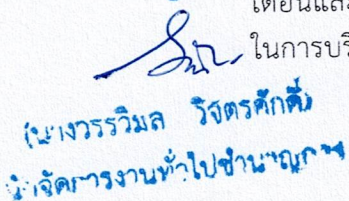 เดือนและ
ในการบริ
(นางวรรวิมล วิจิตรศักดิ์)
นักจัดการงานทั่วไปชำนาญการ